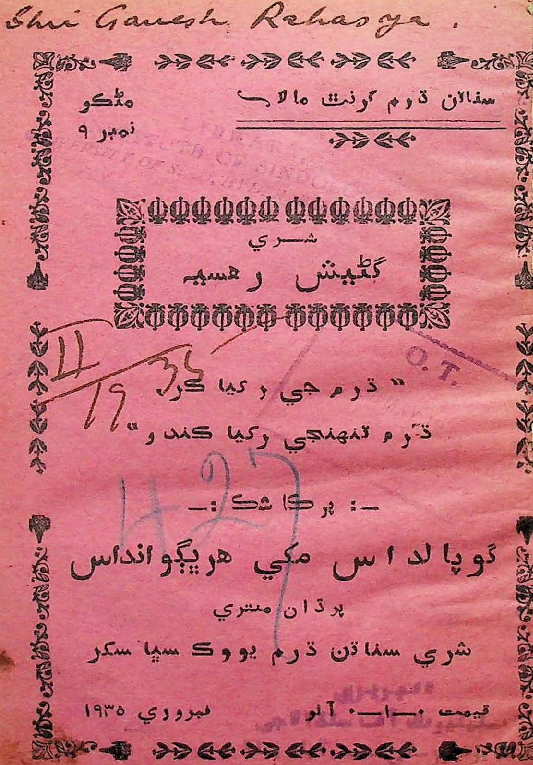 Shri Ganesh Rahasya.
سناتن ڌرم گرنٿ مالا
مڻڪو
نمبر ٩
شري
گڻيش رهسيہ
II
19 35
O. T.
" ڌرم جي رکيا ڪر،
ڌرم تنهنجي رکيا ڪندو "
427
-: پرڪاشڪ :-
گوپالداس مکي هرڀڳوانداس
پرڌان منتري
شري سناتن ڌرم يووڪ سڀا سکر
قيمت ٠-١-٠ آنو
فيبروري ١٩٣٥